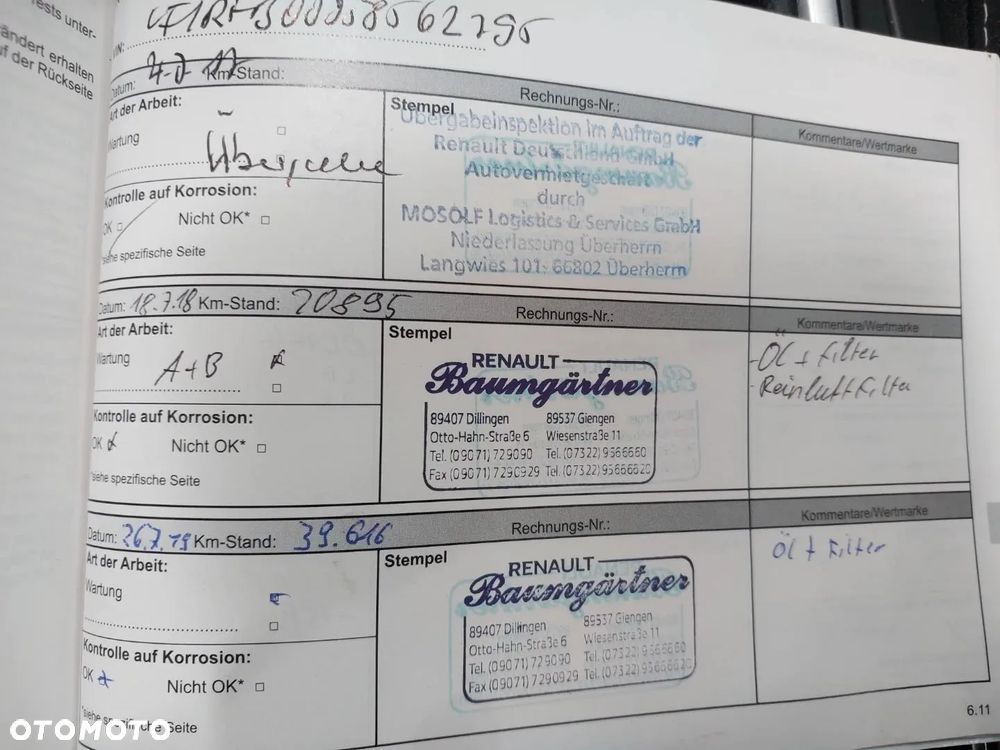 ests unter-
ändert erhalten
f der Rückseite
VIN:
Datum: Km-Stand: Rechnungs-Nr.:
Art der Arbeit:
Wartung
Stempel
Kommentare/Wertmarke
Übergabeinspektion im Auftrag der
Renault Deutschland GmbH
Autovermietgeschäft
durch
MOSOLF Logistics & Services GmbH
Niederlassung Überherrn
Langwies 101, 66802 Überherrn
Kontrolle auf Korrosion:
OK Nicht OK*
*siehe spezifische Seite
Datum: 18.7.18 Km-Stand: 20895 Rechnungs-Nr.:
Art der Arbeit:
Wartung A+B
Stempel
Kommentare/Wertmarke
- Öl + Filter
- Reinluftfilter
RENAULT
Baumgärtner
89407 Dillingen 89537 Giengen
Otto-Hahn-Straße 6 Wiesenstraße 11
Tel. (09071) 729090 Tel. (07322) 9566660
Fax (09071) 7290929 Tel. (07322) 95666620
Kontrolle auf Korrosion:
OK Nicht OK*
*siehe spezifische Seite
Datum: 26.7.19 Km-Stand: 39.616 Rechnungs-Nr.:
Art der Arbeit:
Wartung
Stempel
Kommentare/Wertmarke
Öl + Filter
RENAULT
Baumgärtner
89407 Dillingen 89537 Giengen
Otto-Hahn-Straße 6 Wiesenstraße 11
Tel. (09071) 729090 Tel. (07322) 9566660
Fax (09071) 7290929 Tel. (07322) 95666620
Kontrolle auf Korrosion:
OK Nicht OK*
*siehe spezifische Seite
6.11
OTOMOTO